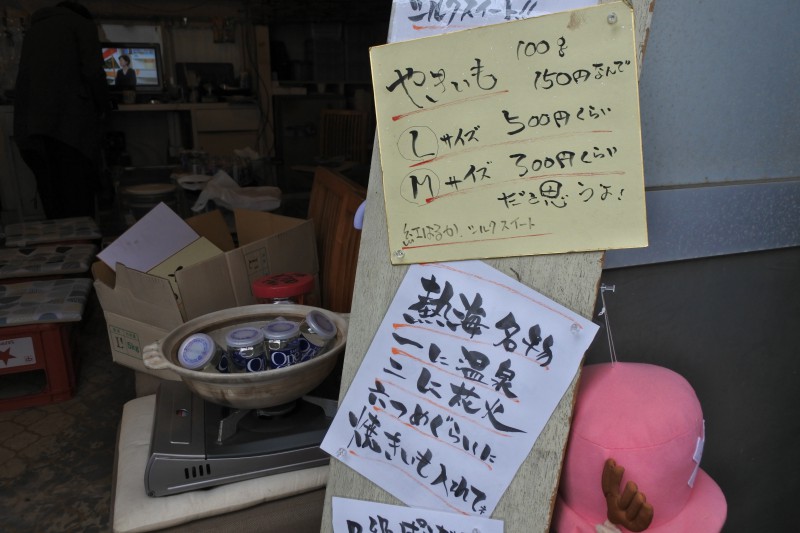 シルクスイート!!
100g
やきいも 150円なんで
Lサイズ 500円くらい
Mサイズ 300円くらい
だと思うよ!
紅はるか、シルクスイート
熱海名物
一に温泉
二に花火
六つめぐらいに
焼きいも入れて
One